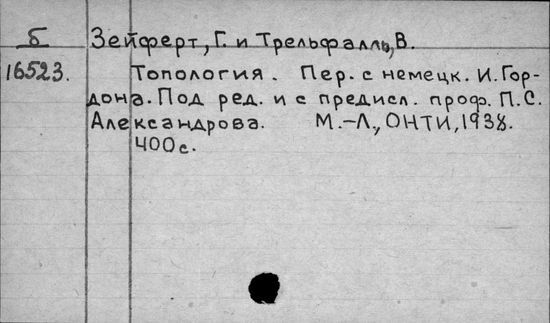 Б Зейферт, Г. и Трельфалль, В.
16523. Топология. Пер. с немецк. И. Гор-
дона. Под ред. и с предисл. проф. П.С.
Александрова. М.-Л., ОНТИ, 1938.
400 с.